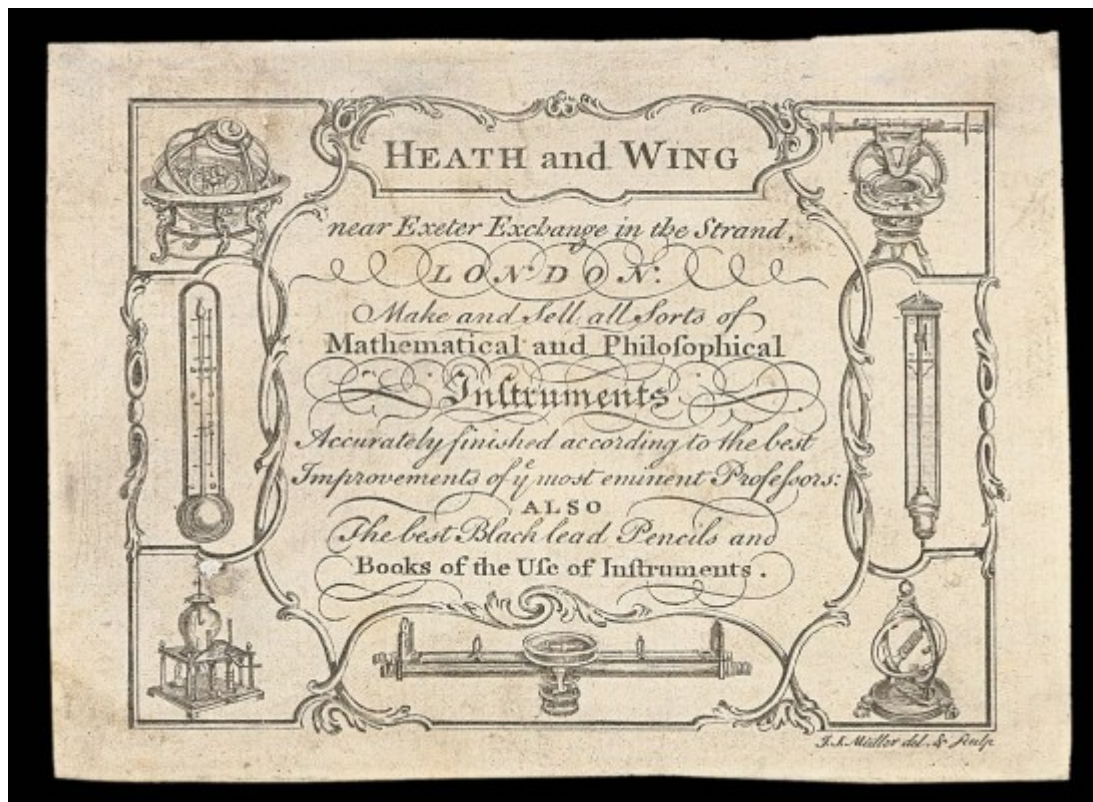 HEATH and WING
near Exeter Exchange in the Strand,
LONDON:
Make and Sell all Sorts of
Mathematical and Philoſophical
Inſtruments
Accurately finiſhed according to the best
Improvements of yͤ most eminent Profeſsors:
ALSO
The best Black lead Pencils and
Books of the Uſe of Inſtruments.
J.S. Müller del. & Sculp